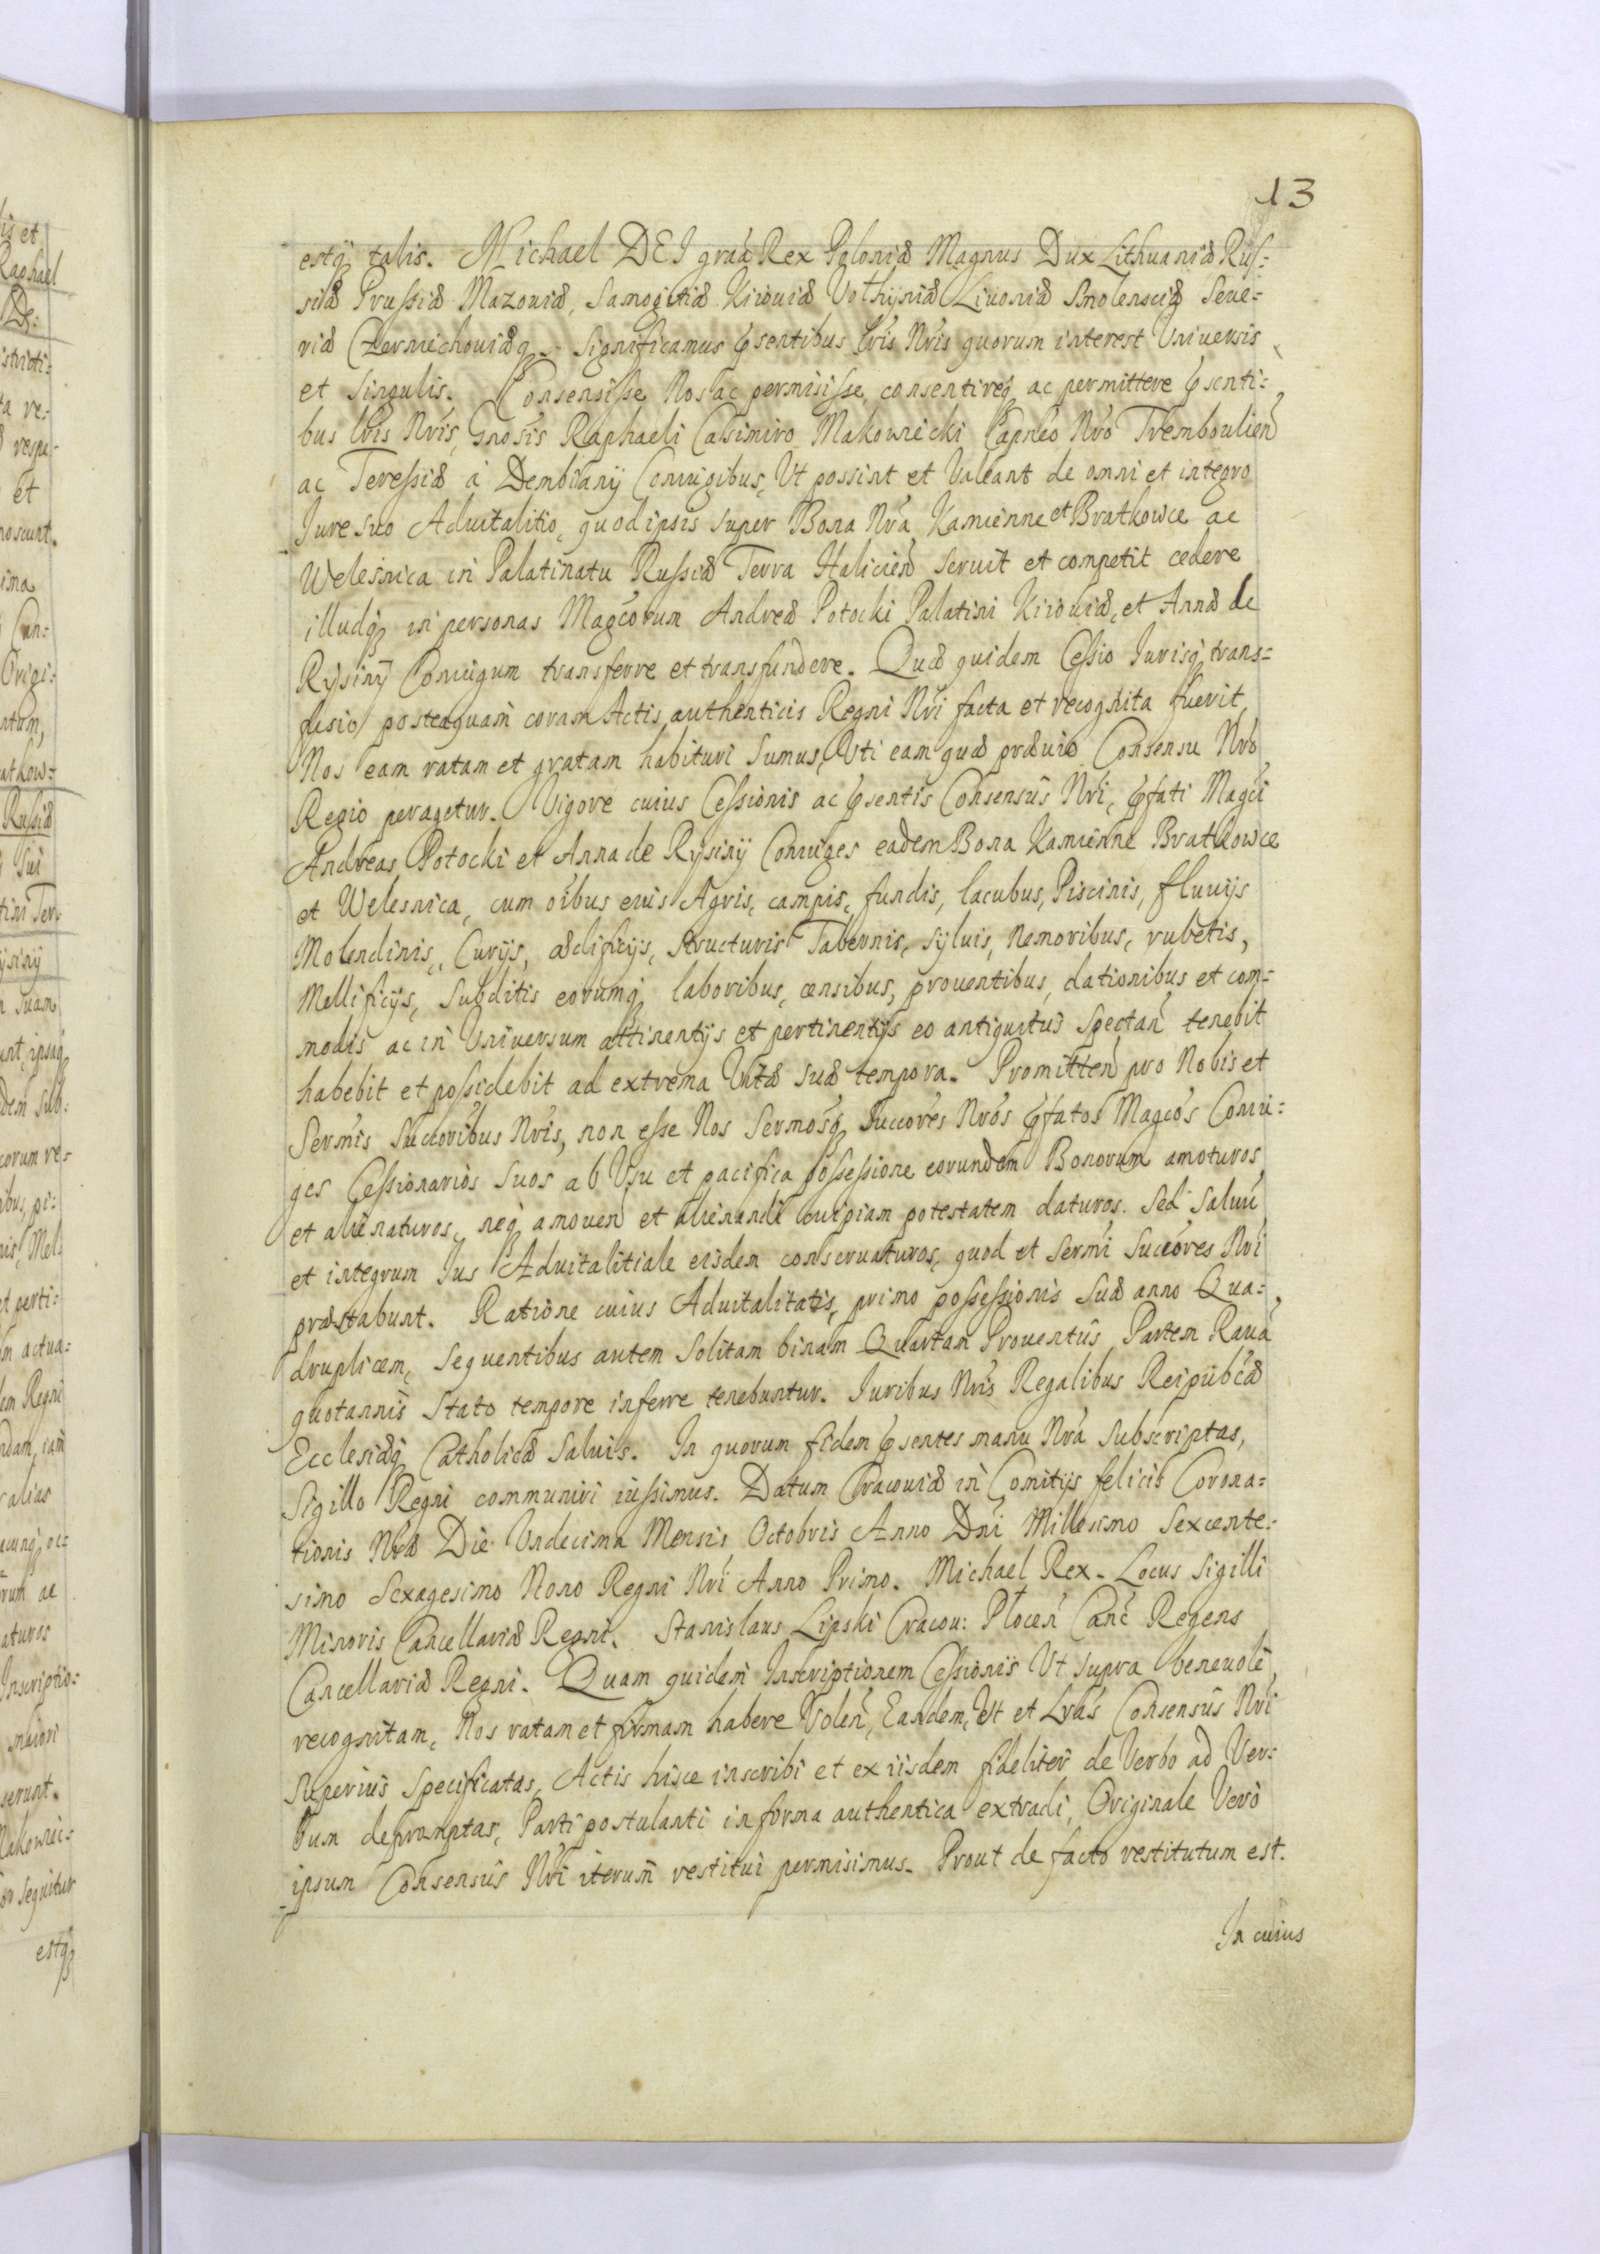 13
estq; talis. Michael DEI gra͠a Rex Poloniæ Magnus Dux Lithuaniæ Rus-
siæ Prussiæ Mazouiæ, Samogitiæ Kiiouiæ Volhyniæ Liuoniæ Smolensciæ Seue-
riæ Czerniechouiæq. Significamus p͠sentibus l͠ris N͠ris quorum interest Uniuersis
et Singulis. Consensisse Nos ac permisisse, consentireq; ac permittere p͠senti-
bus l͠ris N͠ris, G͠nosis Raphaeli Casimiro Makowiecki Cap͠neo N͠ro Tremboulien͠
ac Teressiæ à Dembiany Coniugibus, Ut possint et Valeant de omni et integro
Iure suo Aduitalitio, quod ipsis super Bona N͠ra Kamienne et Bratkowce ac
Welesnica in Palatinatu Russiæ Terra Halicien͠ Seruit et competit cedere
illudq; in personas Mag͠corum Andreæ Potocki Palatini Kiiouiæ, et Annæ de
Rysiny Coniugum transferre et transfundere. Quæ quidem Cessio Iurisq; trans-
fusio, posteaquam coram Actis authenticis Regni N͠ri facta et recognita fuerit,
Nos eam ratam et gratam habituri Sumus, Uti eam quæ præuio Consensu N͠ro
Regio peragetur. Vigore cuius Cessionis ac p͠sentis Consensus N͠ri, p͠fati Mag͠ci
Andreas Potocki et Anna de Rysiny Coniuges eadem Bona Kamienne Bratkowce
et Welesnica, cum o͠ibus eius Agris, campis, fundis, lacubus, Piscinis, fluuijs
Molendinis, Curijs, ædificijs, structuris Tabernis, syluis, Nemoribus, rubetis,
Mellificijs, Subditis eorumq; laboribus, censibus, prouentibus, dationibus et com-
modis ac in Uniuersum attinentijs et pertinentijs eo antiquitus Spectan͠ tenebit
habebit et possidebit ad extrema Vitæ suæ tempora. Promitten͠ pro Nobis et
Ser͠mis Succ͠oribus N͠ris, non esse Nos Ser͠mosq; Succ͠ores N͠ros p͠fatos Mag͠cos Coniu-
ges Cessionarios suos ab Usu et pacifica possessione eorundem Bonorum amoturos
et alienaturos, neq; amouen͠ et alienandi cuipiam potestatem daturos. Sed Saluu͠
et integrum Ius Aduitalitiale eisdem conseruaturos, quod et Ser͠mi Succ͠ores N͠ri
præstabunt. Ratione cuius Aduitalitatis, primo possessionis suæ anno Qua-
druplicem, Sequentibus autem solitam binam Quartam Prouentus Partem Raua͠
quotannis stato tempore inferre tenebuntur. Iuribus N͠ris Regalibus Reipub͠cæ
Ecclesiæq; Catholicæ Saluis. In quorum fidem p͠sentes manu N͠ra subscriptas,
Sigillo Regni communiri iussimus. Datum Cracouiæ in Comitijs felicis Corona-
tionis N͠ræ Die Undecima Mensis Octobris Anno D͠ni Millesimo Sexcente-
simo Sexagesimo Nono Regni N͠ri Anno Primo. Michael Rex. Locus Sigilli
Minoris Cancellariæ Regni. Stanislaus Lipski Cracou: Plocen͠ Can͠c Regens
Cancellariæ Regni. Quam quidem Inscriptionem Cessionis Ut supra beneuole
recognitam, Nos ratam et firmam habere Volen͠, Eandem, Ut et L͠ras Consensus N͠ri
superius specificatas, Actis hisce inscribi et ex iisdem fideliter de Verbo ad Ver-
bum depromptas, Parti postulanti in forma authentica extradi, Originale Vero
ipsum Consensus N͠ri iterum restitui permisimus. Prout de facto restitutum est.
In cuius